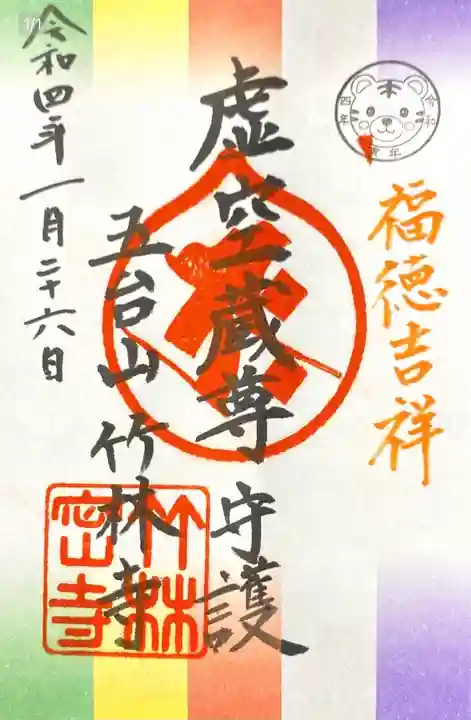 1/1
令和四年
寅年
福徳吉祥
虚空蔵尊 守護
五台山 竹林寺
竹林密寺
令和四年一月二十六日